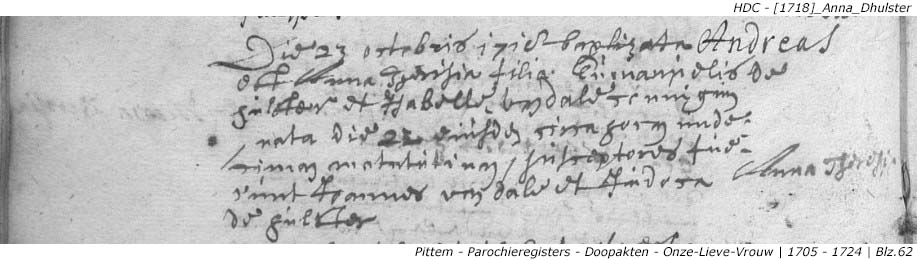 HDC - [1718]_Anna_Dhulster
Die 23 octobris 1718 baptizata Andreas
est Anna Theresia filia Emanuelis de
hulster et Isabelle vandale conjugum
nata die 22 eiusdem circa horam unde-
cimam matutinam, susceptores fue-
runt Joannes vandale et Judoca
Anna Theresia
de hulster
Pittem - Parochieregisters - Doopakten - Onze-Lieve-Vrouw | 1705 - 1724 | Blz.62